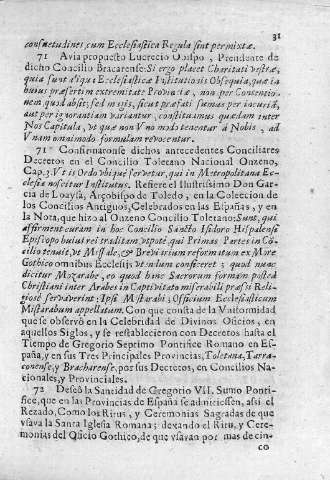 31
consuetudines cum Ecclesiastica Regula sint permixtæ.
71 Avia propuesto Lucrecio Obispo, Presidente de
dicho Concilio Bracarense: Si ergo placet Charitati vestræ,
quia sunt aliqui Ecclesiasticæ Institutionis Obsequia, quæ in
huius præsertim extremitate Provinciæ, non per Contentio-
nem quod absit; sed magis, sicut præfati sumus per incuriã,
aut per ignorantiam variantur, constituamus quædam inter
Nos Capitula, vt quæ non Vno modo tenentur à Nobis, ad
Vnam omnimodo formulam revocentur.
71 Confirmaronse dichos antecedentes Conciliares
Decretos en el Concilio Toletano Nacional Onzeno,
Cap. 3. Vt is Ordo vbique servetur, qui in Metropolitana Ec-
clesia noscitur Institutus. Refiere el Ilustrissimo Don Gar-
cia de Loaysa, Arçobispo de Toledo, en la Coleccion de
los Concilios Antiguos, Celebrados en las Españas, y en
la Nota, que hizo al Onzeno Concilio Toletano: Sunt, qui
affirment curam in hoc Concilio Sancto Isidoro Hispalense
Episcopo huius rei traditam vtpotè, qui Primas Partes in Cõ-
cilio tenuit, vt Missale, & Breviarium reformatum ex More
Gothico omnibus Ecclesijs vtendum conficeret; quod nunc
dicitur Mozarabe, eo quod hanc Sacrorum formam posteà
Christiani inter Arabes in Captivitate miserabili præssi Reli-
giosè servaverint: Ipsi Mistarabi, Officium Ecclesiasticum
Mistarabum appellatum. Con que consta de la Vniformidad
que se observò en la Celebridad de Divinos Oficios, en
aquellos Siglos, y se restablecieron con Decretos hasta el
Tiempo de Gregorio Septimo Pontifice Romano en Es-
paña, y en sus Tres Principales Provincias, Toletana, Tarra-
conense, y Bracharense, por sus Decretos, en Concilios Na-
cionales, y Provinciales.
72 Deseò la Santidad de Gregorio VII. Sumo Ponti-
fice, que en las Provincias de España se admitiessen, assi el
Rezado, Como los Ritus, y Ceremonias Sagradas de que
vsava la Santa Iglesia Romana; dexando el Ritu, y Cere-
monias del Oficio Gothico, de que vsavan por mas de cin-
co